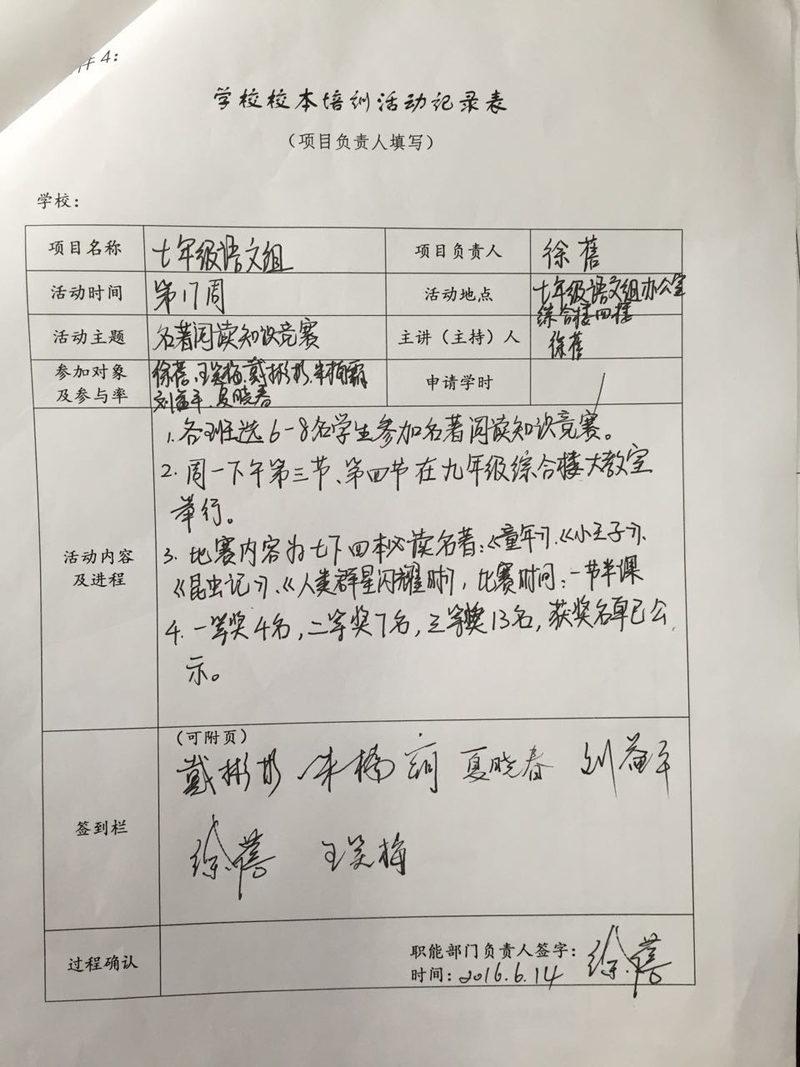 件4：
学校校本培训活动记录表
（项目负责人填写）
学校：
项目名称 七年级语文组 项目负责人 徐蓓
活动时间 第17周 活动地点 七年级语文组办公室
综合楼四楼
活动主题 名著阅读知识竞赛 主讲（主持）人 徐蓓
参加对象
及参与率
徐蓓、王笑梅、戴彬彬、朱梅霜
刘益平、夏晓春
申请学时 /
活动内容
及进程
1. 各班选6-8名学生参加名著阅读知识竞赛。
2. 周一下午第三节、第四节在九年级综合楼大教室
举行。
3. 比赛内容为七下四本必读名著：《童年》、《小王子》、
《昆虫记》、《人类群星闪耀时》，比赛时间：一节半课
4. 一等奖4名，二等奖7名，三等奖13名，获奖名单已公
示。
签到栏
（可附页）
戴彬彬 夏晓春 刘益平
徐蓓 王笑梅
过程确认
职能部门负责人签字：徐蓓
时间：2016.6.14